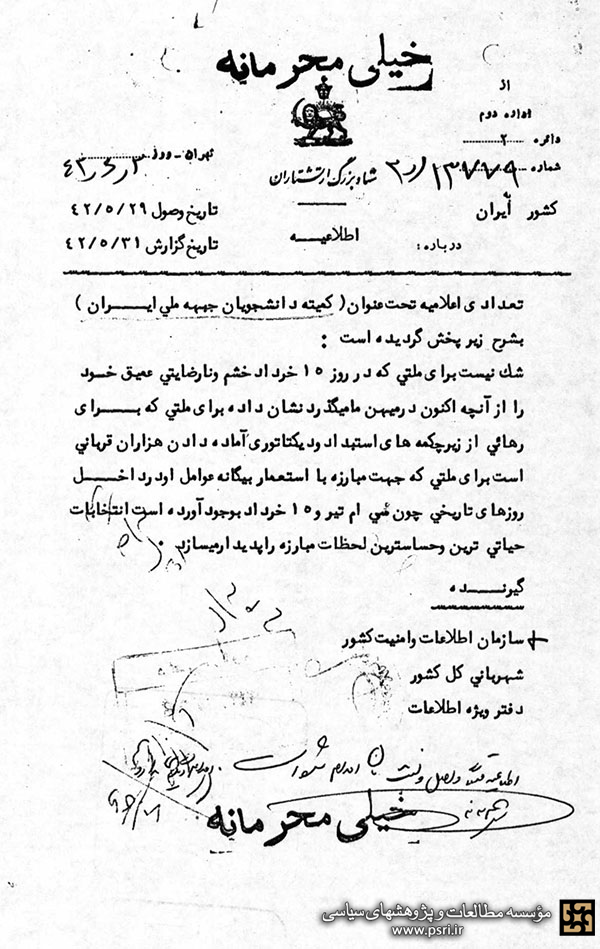 خیلی محرمانه
از
اداره دوم
دائره ۲
شماره
تهران - روز
شاه بزرگ ارتشتاران
کشور ایران
تاریخ وصول ۴۲/۵/۲۹
در باره :
اطلاعیــه
تاریخ گزارش ۴۲/۵/۳۱
تعدادی اعلامیه تحت عنوان ( کمیته دانشجویان جبهه ملي ایــران )
بشرح زیر پخش گردیده است :
شك نیست برای ملتي که در روز ۱۵ خرداد خشم ونارضایتي عمیق خــود
را از آنچه اکنون در میهن مامیگذرد نشان داده برای ملتي که بــرای
رهائي از زیرچکمه های استبداد ودیکتاتوری آماده دادن هزاران قرباني
است برای ملتي که جهت مبارزه با استعمار بیگانه عوامل اودر داخــل
روزهای تاریخي چون سي ام تیر و ۱۵ خرداد بوجود آورده است انتخابات
حیاتي ترین وحساسترین لحظات مبارزه را پدیدار میسازد .
گیرنــده
سازمان اطلاعات وامنیت کشور
شهرباني کل کشور
دفتر ویژه اطلاعات
خیلی محرمانه
مؤسسه مطالعات و پژوهشهای سیاسی
www.psri.ir